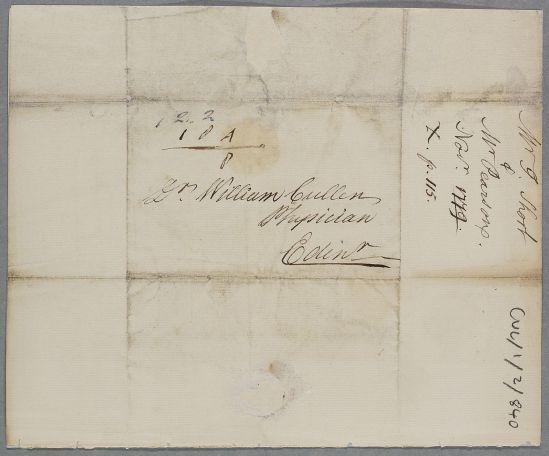 122
18A
8
Dr. William Cullen
Physician
Edinr
Mr. J. Short
of
Mr
Novr. 1779
X. p. 115.
CUL/1/2/840